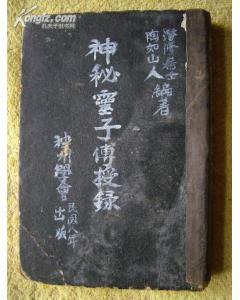 孔夫子旧书网
KONGFZ.COM
潜修居士
陶如山人 編著
神秘靈子傳授録
神州學會
民国八年
出版